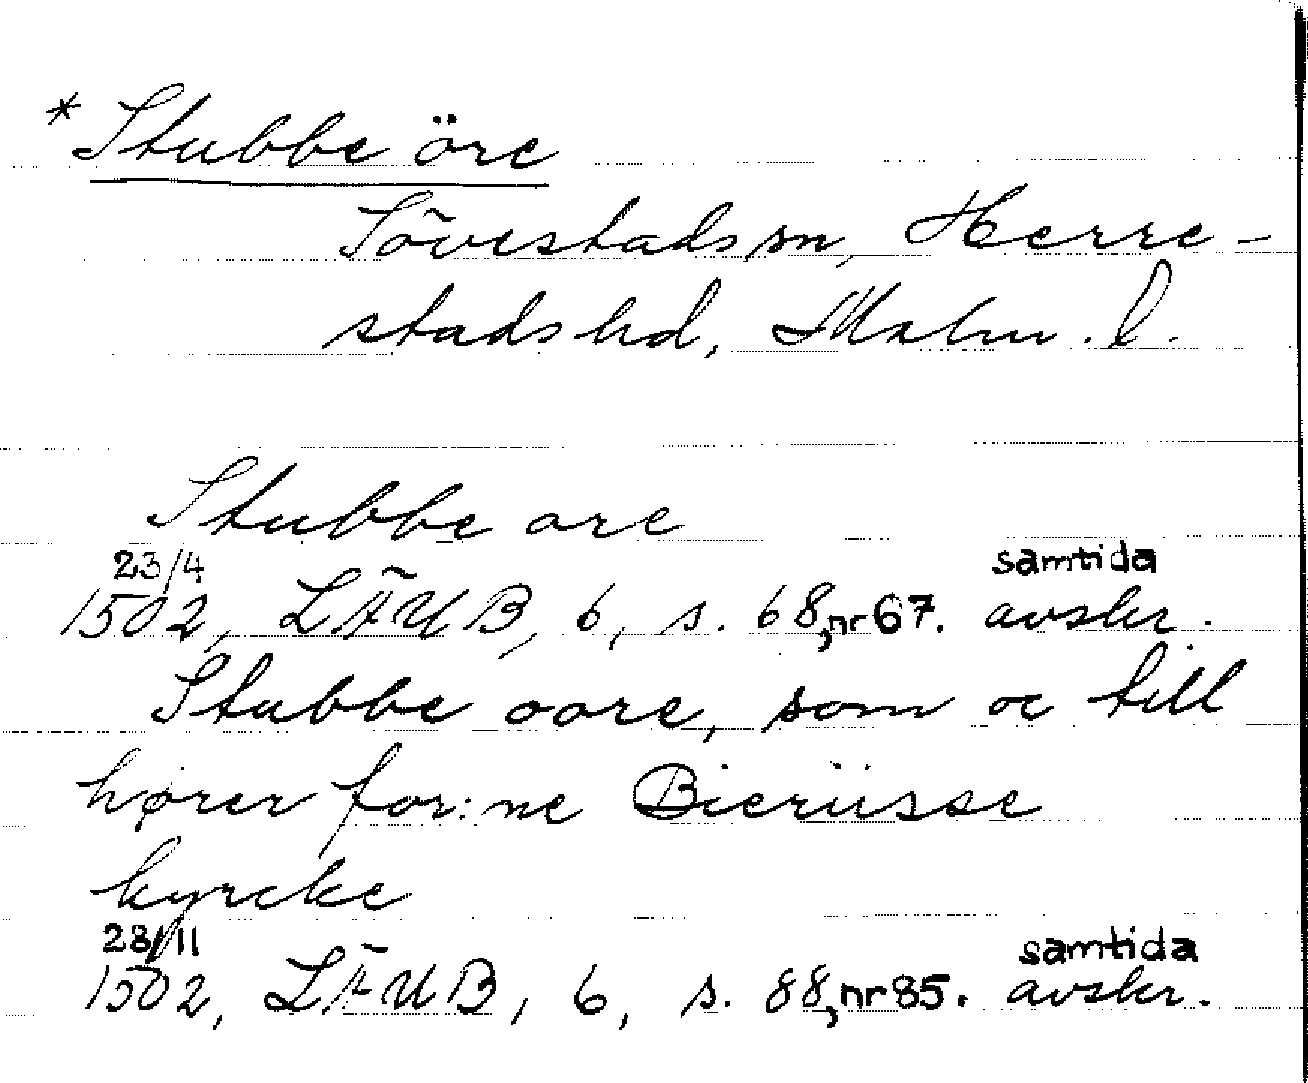 * Stubbe öre
Sövestads sn, Herre-
stads hd, Malm. l.
Stubbe are
23/4 samtida
1502, LÄUB, 6, s. 68, nr 67. avskr.
Stubbe oore, som oc till
hører for:ne Bierüsse
kyrcke
23/11 samtida
1502, LÄUB, 6, s. 88, nr 85. avskr.